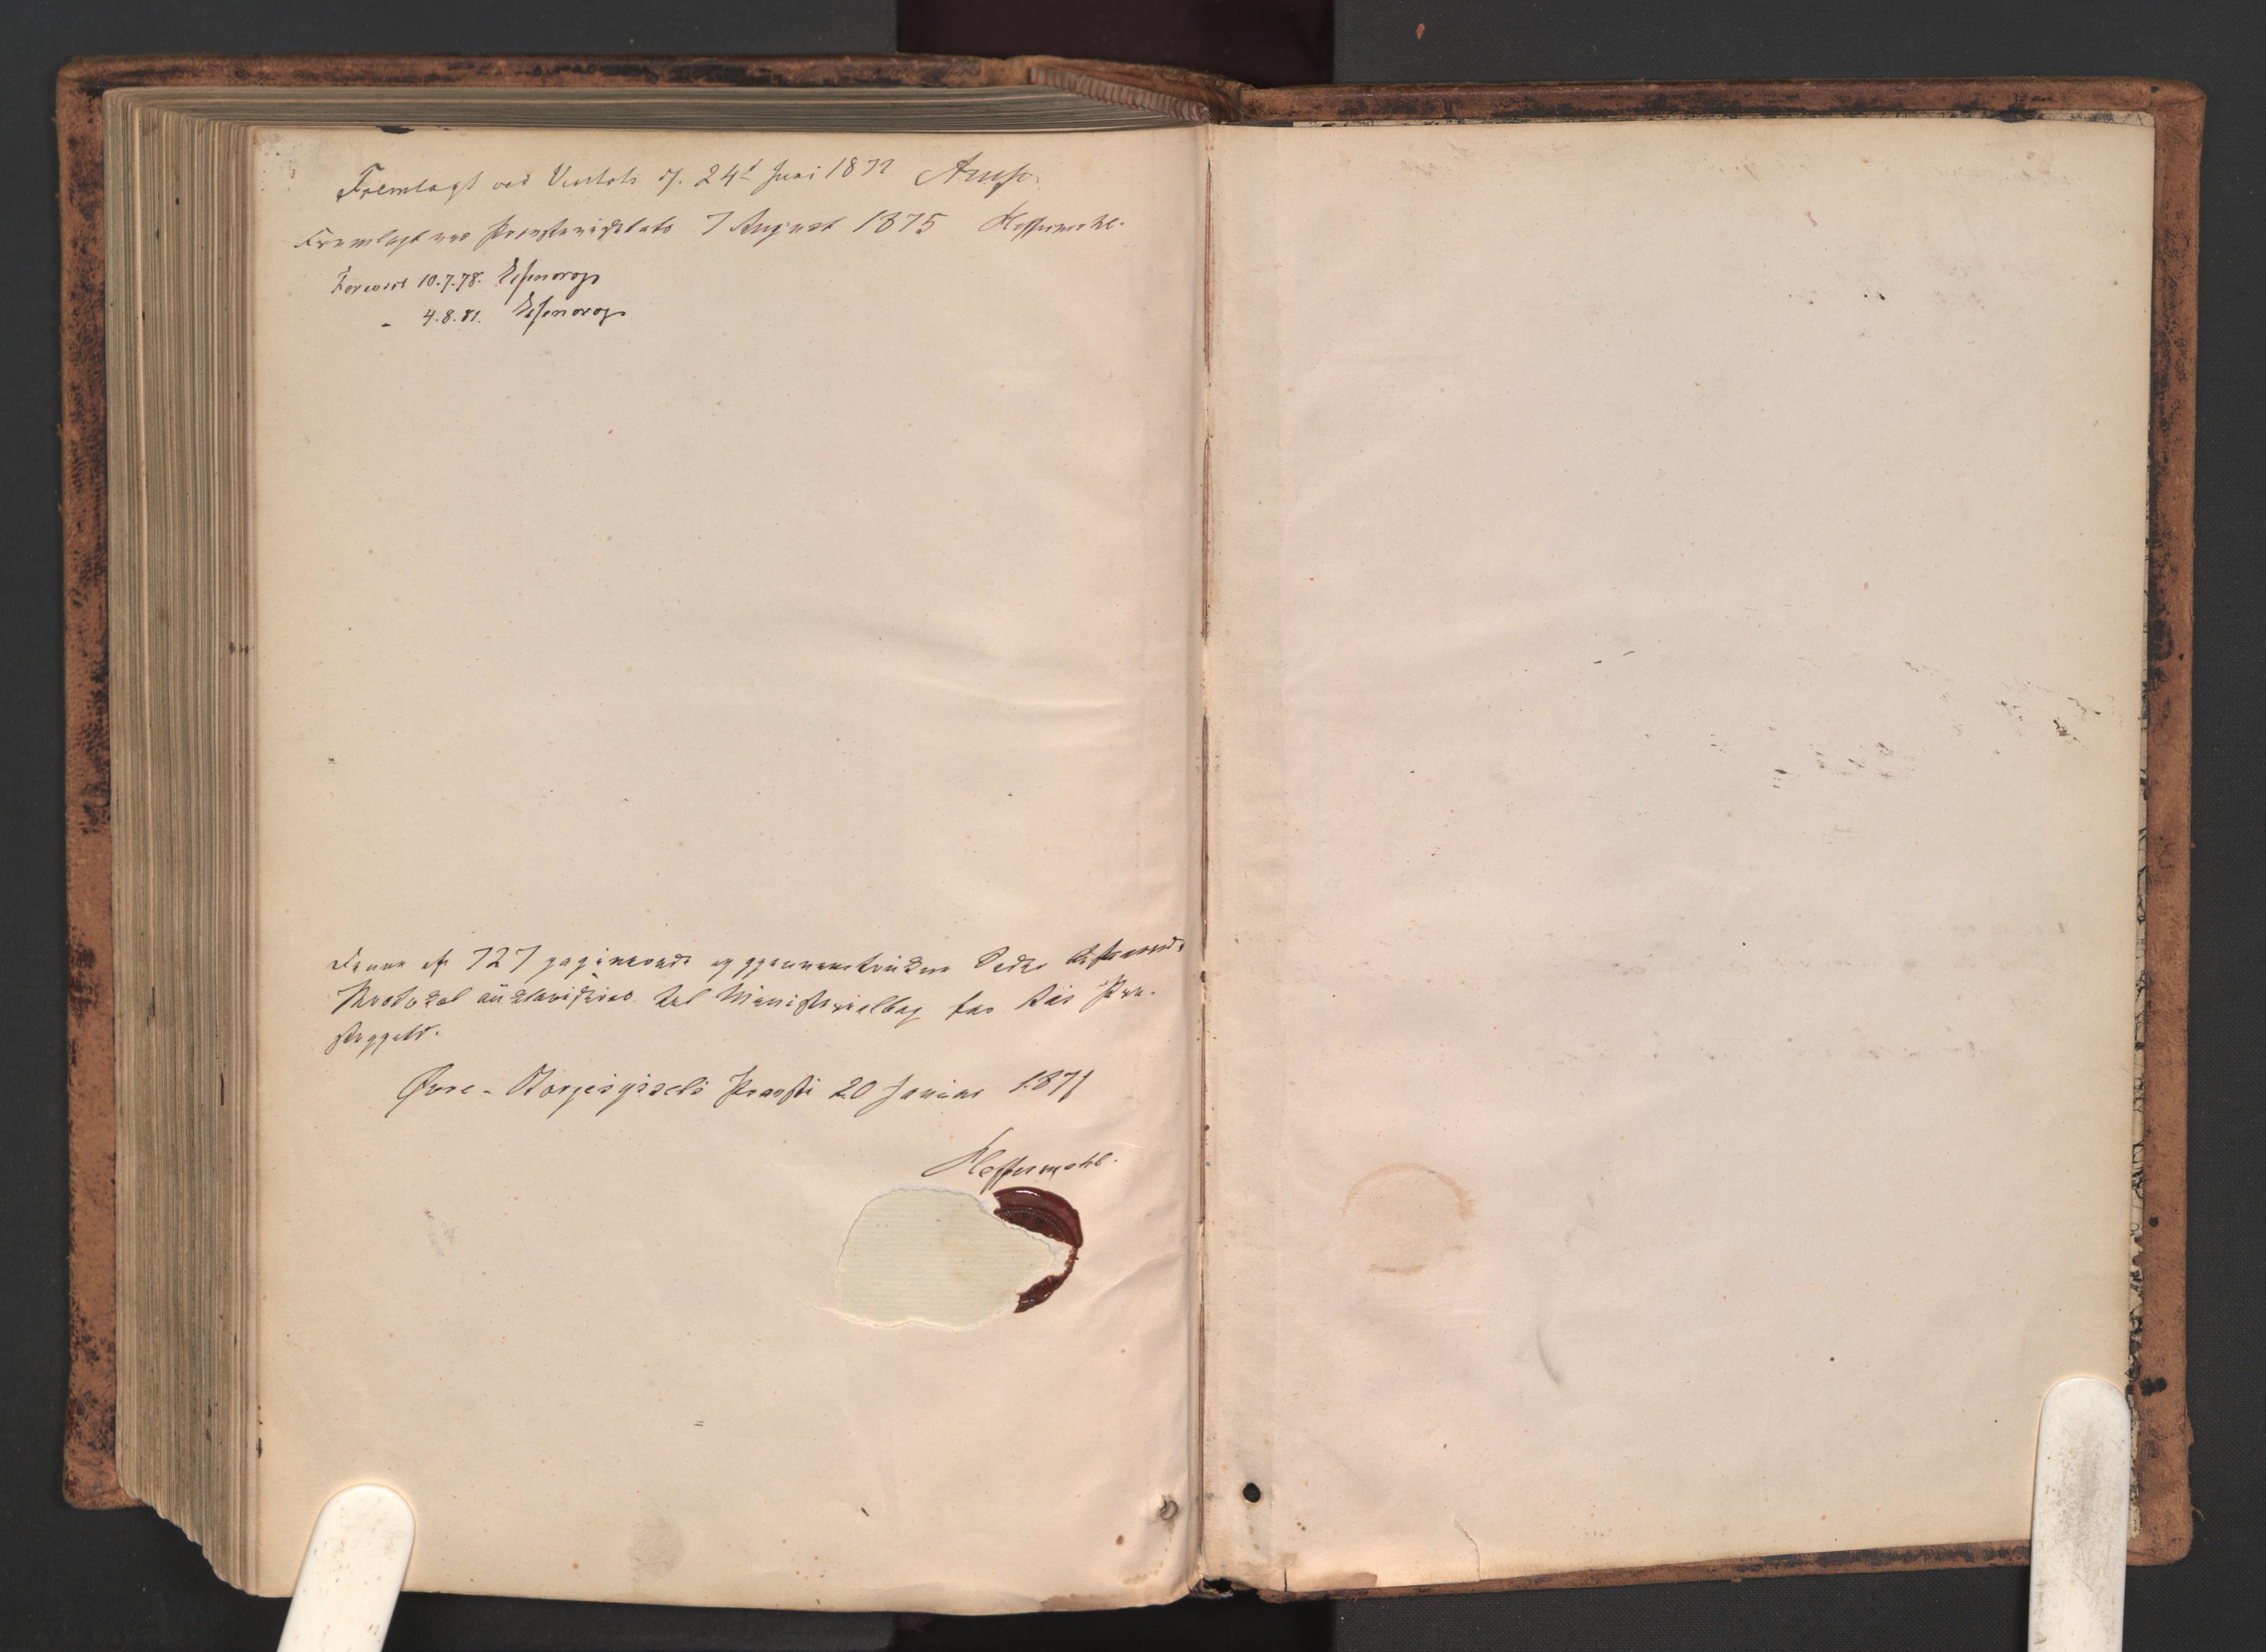 Fremlagt ved Visitats d. 24d Juni 1872 Arup.
Fremlagt ved Provstevisitats 7 August 1875 Heffermehl.
Forevist 10.7.78. Essendrop
„ 4.8.81. Essendrop
Denne af 727 paginerede og gjennemtrukne Sider bestaaende
Protokol autoriseres til Ministerialbog for Præ-
stegjeld.
Øvre-Borgesyssels Provsti 20 Januar 1871
Heffermehl.